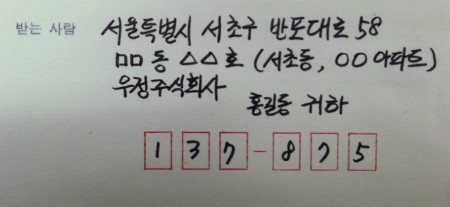 받는 사람 서울특별시 서초구 반포대로 58
□□ 동 △△ 호 (서초동, ○○아파트)
우정주식회사
홍길동 귀하
137-875